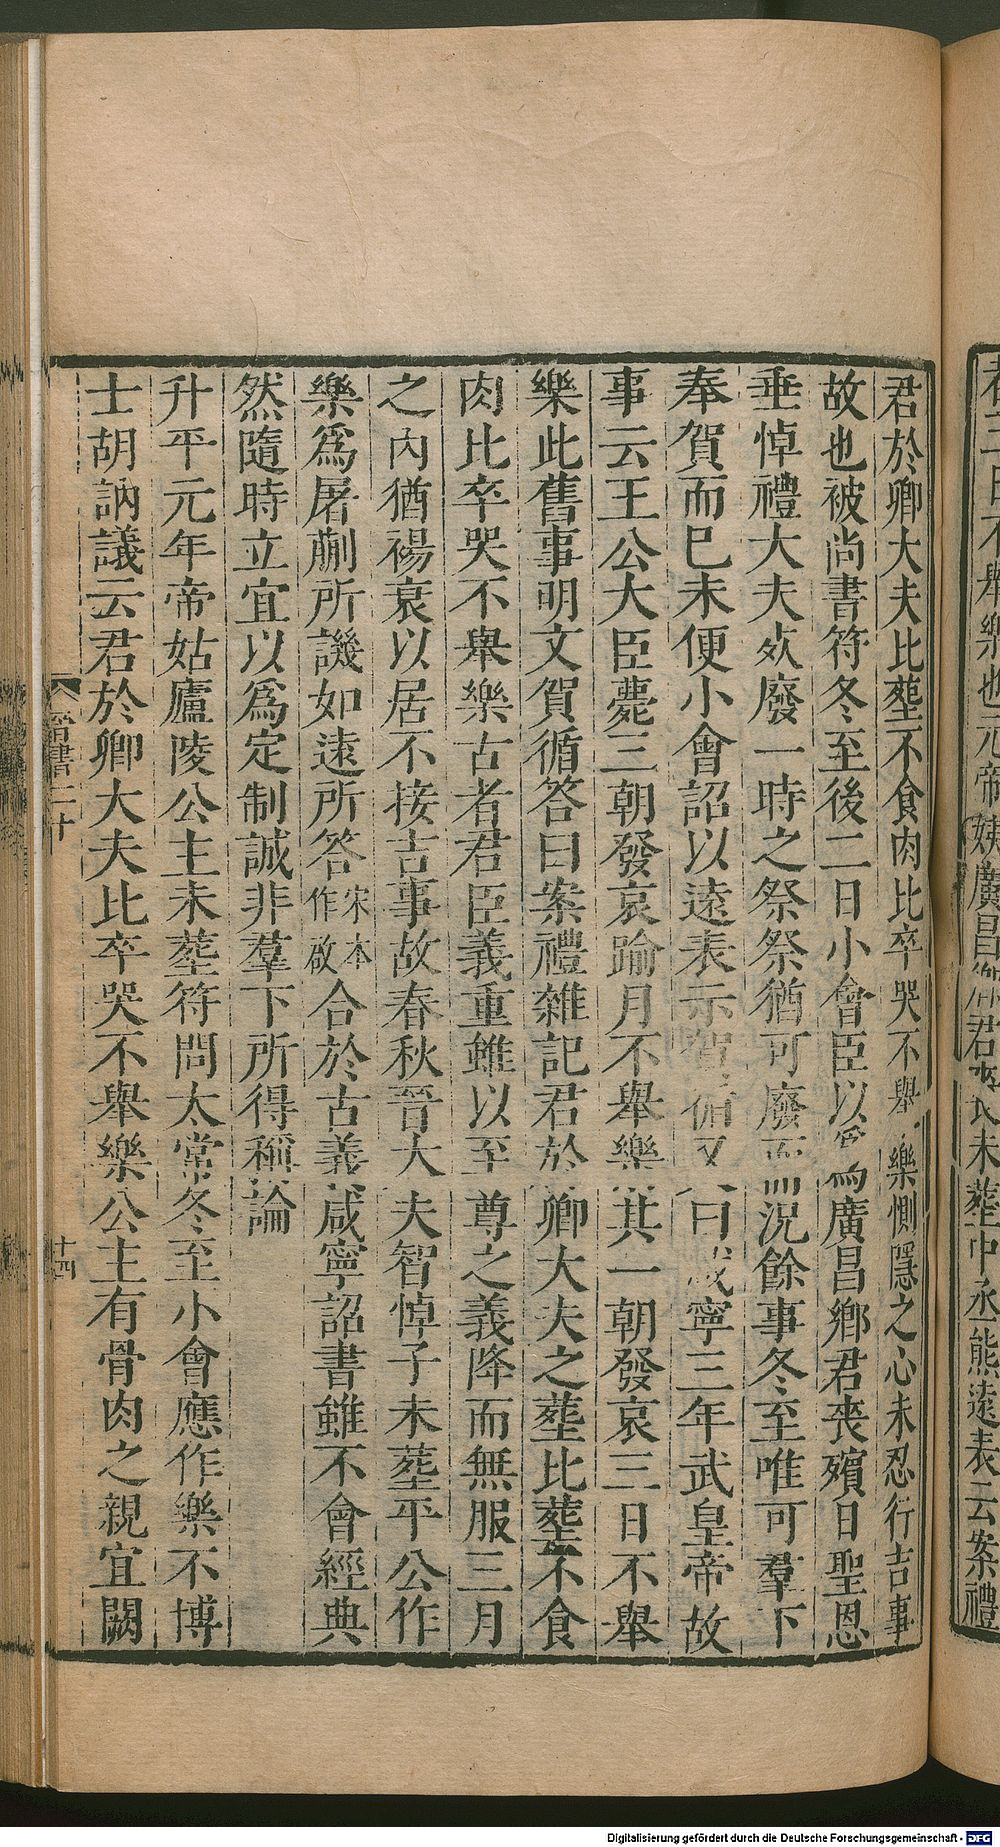 君於卿大夫比塟不食肉比卒哭不舉樂惻隱之心未忍行吉事
故也被尚書符冬至後二日小會臣以爲廣昌鄉君喪殯日聖恩
垂悼禮大夫死廢一時之祭祭猶可廢而況餘事冬至唯可羣下
奉賀而已未便小會詔以遠表示賀循又曰咸寧三年武皇帝故
事云王公大臣薨三朝發哀踰月不舉樂其一朝發哀三日不舉
樂此舊事明文賀循答曰案禮雜記君於卿大夫之塟比塟不食
肉比卒哭不舉樂古者君臣義重雖以至尊之義降而無服三月
之內猶裼衰以居不接吉事故春秋晉大夫智悼子未塟平公作
樂爲屠蒯所譏如遠所答宋本作啟合於古義咸寧詔書雖不會經典
然隨時立宜以爲定制誠非羣下所得稱論
升平元年帝姑廬陵公主未塟符問太常冬至小會應作樂不博
士胡訥議云君於卿大夫比卒哭不舉樂公主有骨肉之親宜闕
晉書二十
十四
君三日不舉樂也元帝姨廣昌鄉君喪未塟中丞熊遠表云案禮
Digitalisierung gefördert durch die Deutsche Forschungsgemeinschaft - DFG